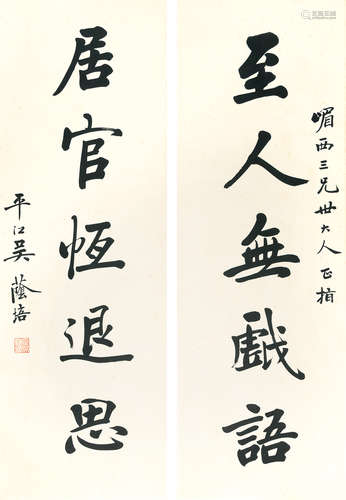 至人無戲語
媚西三兄世大人正指
居官恆退思
平江吳蔭培